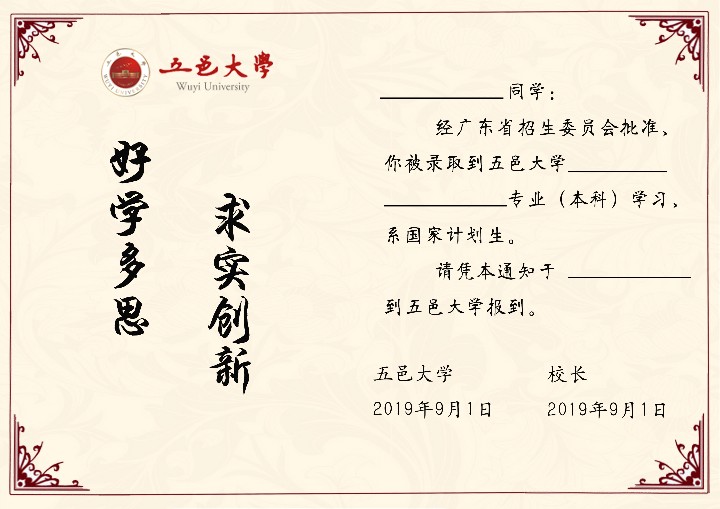 五邑大學
Wuyi University
好学多思
求实创新
____________同学：
经广东省招生委员会批准、
你被录取到五邑大学__________
____________专业（本科）学习，
系国家计划生。
请凭本通知于 ____________
到五邑大学报到。
五邑大学 校长
2019年9月1日 2019年9月1日